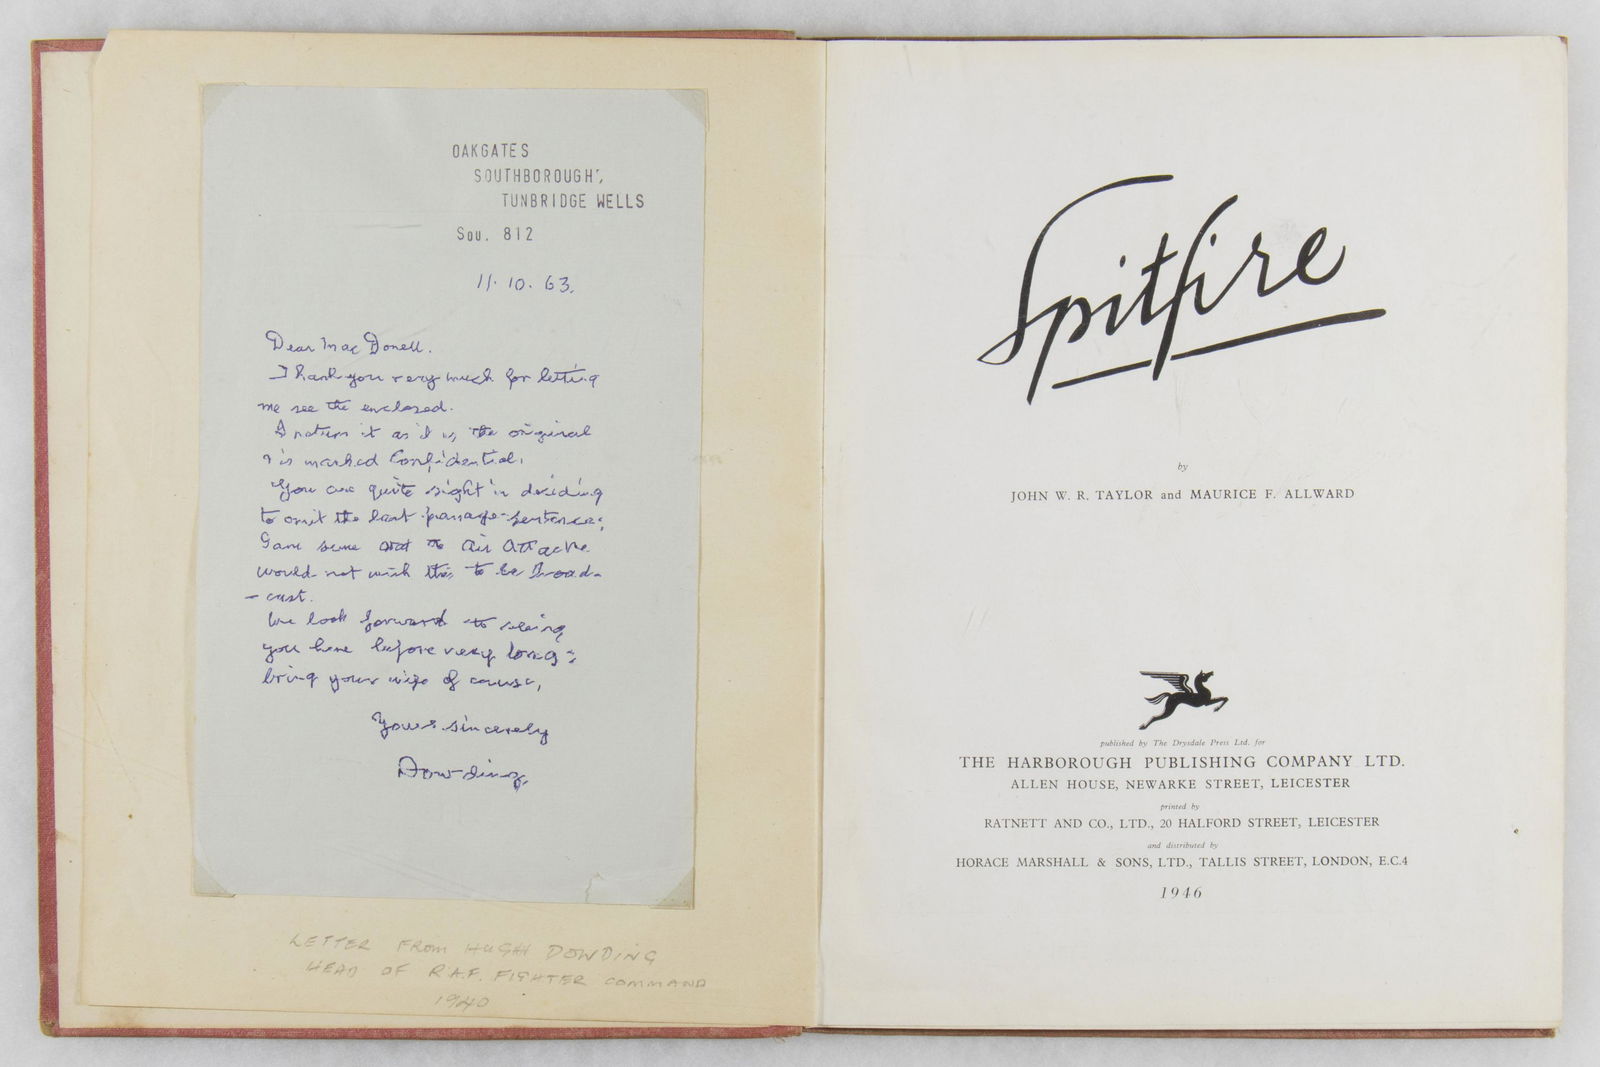 OAKGATES
SOUTHBOROUGH,
TUNBRIDGE WELLS
Sou. 812
11. 10. 63.
Dear Mac Donell.
Thank you very much for letting
me see the enclosed.
I return it as it is the original
& is marked Confidential.
You are quite right in deciding
to omit the last passage sentence;
I am sure that the Air Attache
would not wish this to be broad-
- cast.
We look forward to seeing
you here before very long:
bring your wife of course,
Yours sincerely
Dowding.
LETTER FROM HUGH DOWDING
HEAD OF R.A.F. FIGHTER COMMAND
1940
Spitfire
by
JOHN W. R. TAYLOR and MAURICE F. ALLWARD
published by The Drysdale Press Ltd. for
THE HARBOROUGH PUBLISHING COMPANY LTD.
ALLEN HOUSE, NEWARKE STREET, LEICESTER
printed by
RATNETT AND CO., LTD., 20 HALFORD STREET, LEICESTER
and distributed by
HORACE MARSHALL & SONS, LTD., TALLIS STREET, LONDON, E.C.4
1946